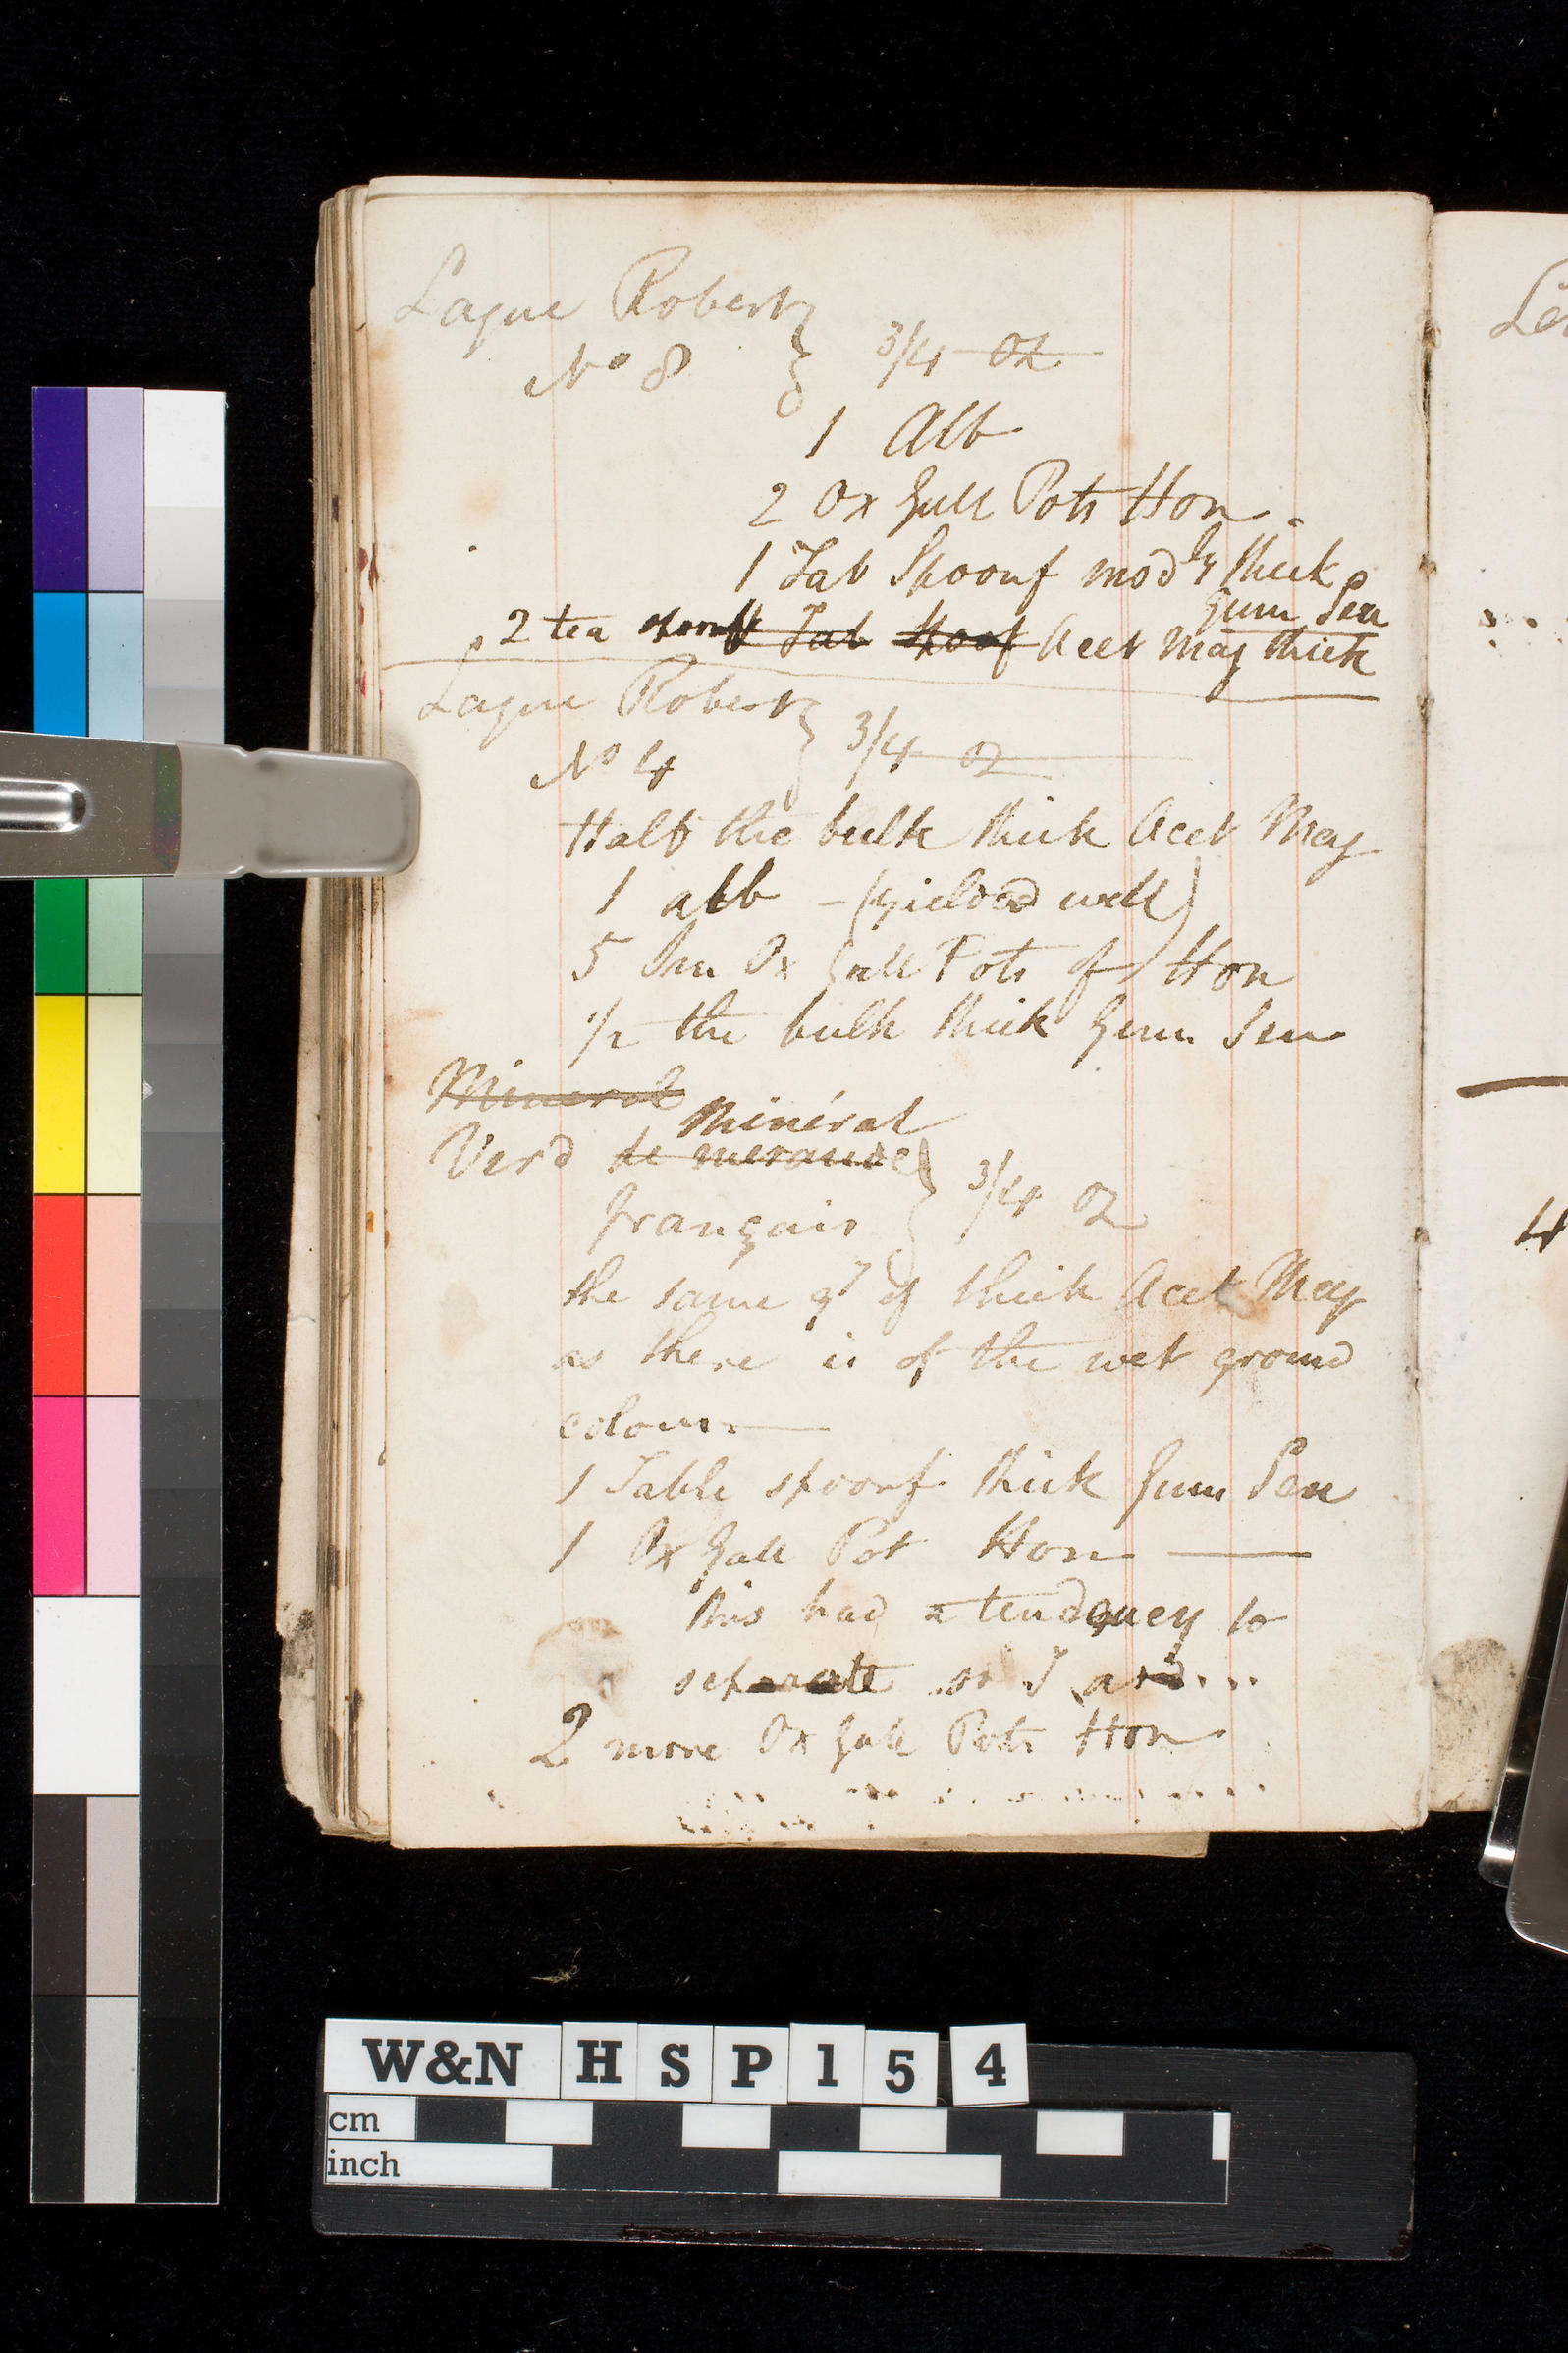 Laque Robert
No 8 } 3/4 oz
1 Alb
2 Ox Gall Pots Hon
1 Tab Spoonf modly thick
Gum Sen
2 tea spoonf Tab Spoonf Acet Mag thick
Laque Robert
No 4 } 3/4 oz
Half the bulk thick Acet Mag
1 alb - (yielded well)
5 Ox Gall Pots of Hon
1/2 the bulk thick Gum Sen
Mineral
Minéral
Verd de merande
français } 3/4 oz
the same qy of thick Acet Mag
as there is of the wet ground
colour
1 Table spoonf thick Gum Sen
1 Ox Gall Pot Hon
this had a tendency to
separate so I add...
2 more Ox Gall Pots Hon
Le
4
W&N H S P 1 5 4
cm
inch